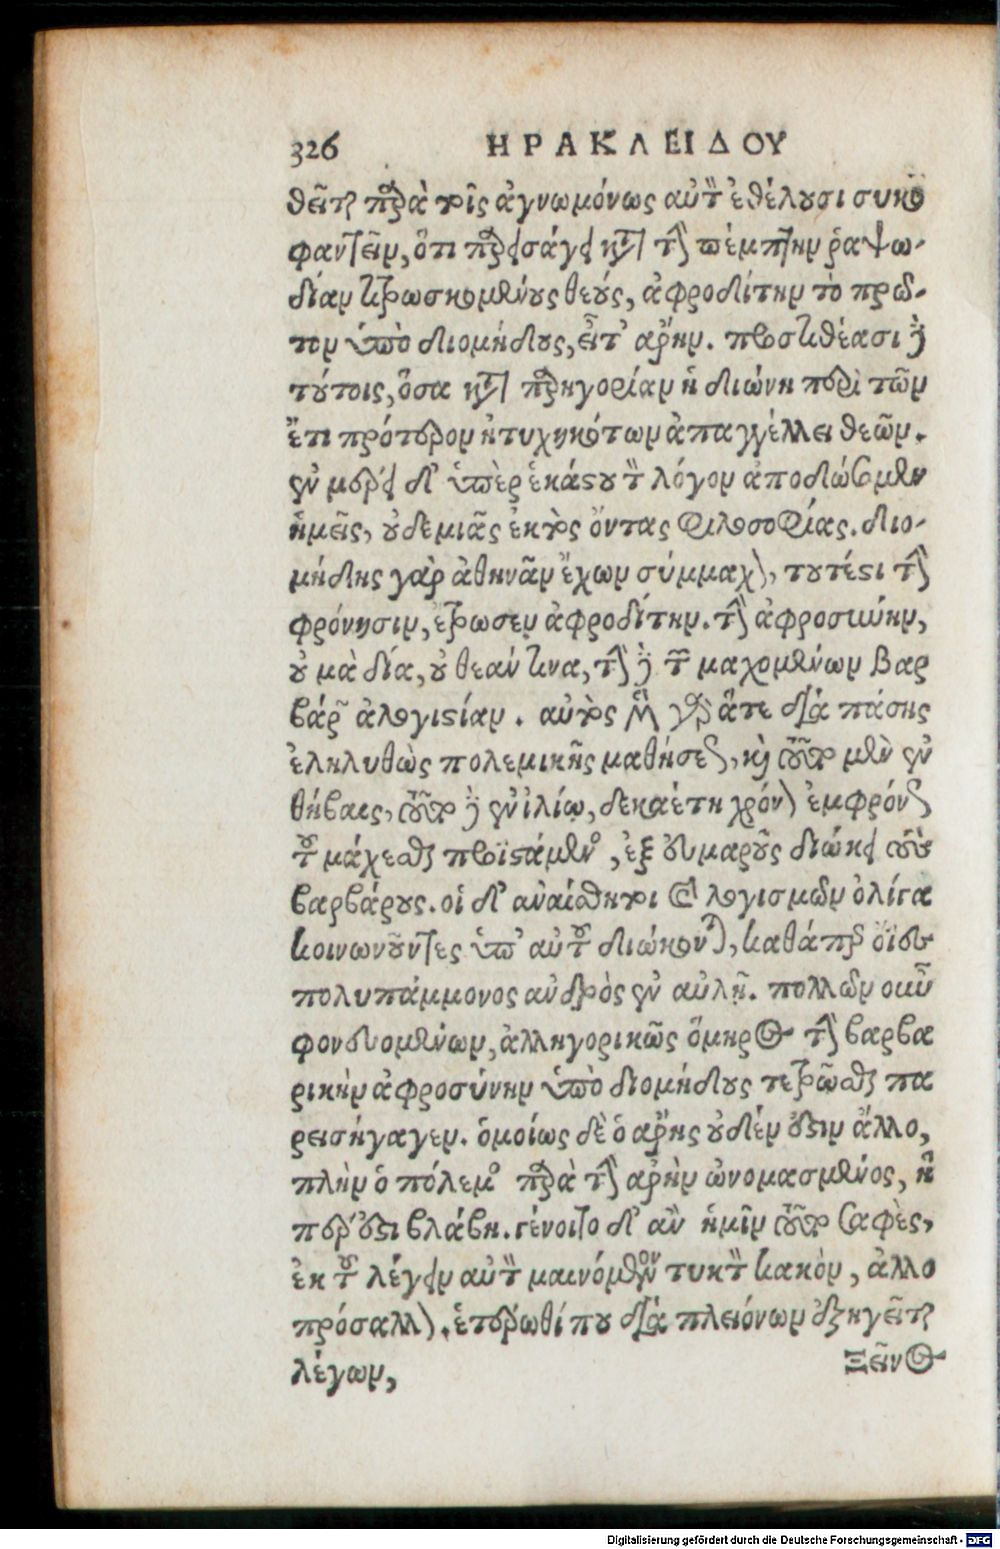 326 ΗΡΑΚΛΕΙΔΟΥ
θεῖται παρὰ τοῖς ἀγνωμόνως αὐτὸν ἐθέλουσι συκο
φαντεῖν, ὅτι παρεισάγει κατὰ τὴν πέμπτην ῥαψω-
δίαν τιτρωσκομένους θεούς, ἀφροδίτην τὸ πρῶ-
τον ὑπὸ διομήδους, εἶτ' ἄρην. προστιθέασι δὲ
τούτοις, ὅσα κατὰ παρηγορίαν ἡ διώνη περὶ τῶν
ἔτι πρότερον ἠτυχηκότων ἀπαγγέλλει θεῶν.
ἐν μέρει δ' ὑπὲρ ἑκάστου τὸν λόγον ἀποδώσομεν
ἡμεῖς, οὐδεμιᾶς ἐκτὸς ὄντας φιλοσοφίας. διο-
μήδης γὰρ ἀθηνᾶν ἔχων σύμμαχον, τουτέστι τὴν
φρόνησιν, ἔτρωσεν ἀφροδίτην. τὴν ἀφροσύνην,
οὐ μὰ δία, οὐ θεάν τινα, τὴν δὲ τῶν μαχομένων βαρ
βάρων ἀλογιστίαν. αὐτὸς μὲν γὰρ ἅτε διὰ πάσης
ἐληλυθὼς πολεμικῆς μαθήσεως, καὶ τοῦτο μὲν ἐν
θήβαις, τοῦτο δὲ ἐν ἰλίῳ, δεκαέτη χρόνον ἐμφρόνως
τοῦ μάχεσθαι προϊστάμενος, ἐξ εὐμαροῦς διώκει τοὺς
βαρβάρους. οἱ δ' ἀναίσθητοι καὶ λογισμῶν ὀλίγα
κοινωνοῦντες ὑπ' αὐτοῦ διώκονται, καθάπερ ὄϊες
πολυπάμμονος ἀνδρὸς ἐν αὐλῇ. πολλῶν οὖν
φονευομένων, ἀλληγορικῶς ὅμηρος τὴν βαρβα
ρικὴν ἀφροσύνην ὑπὸ διομήδους τετρῶσθαι πα
ρεισήγαγεν. ὁμοίως δὲ ὁ ἄρης οὐδέν ἐστιν ἄλλο,
πλὴν ὁ πόλεμος παρὰ τὴν ἀρὴν ὠνομασμένος, ἥ
πέρ ἐστι βλάβη. γένοιτο δ' ἂν ἡμῖν τοῦτο σαφὲς,
ἐκ τοῦ λέγειν αὐτὸν μαινόμενον τυκτὸν κακὸν, ἀλλο
πρόσαλλον. ἑτέρωθί που διὰ πλειόνων ἐξηγεῖται
λέγων, Ξεῖνος
Digitalisierung gefördert durch die Deutsche Forschungsgemeinschaft - DFG